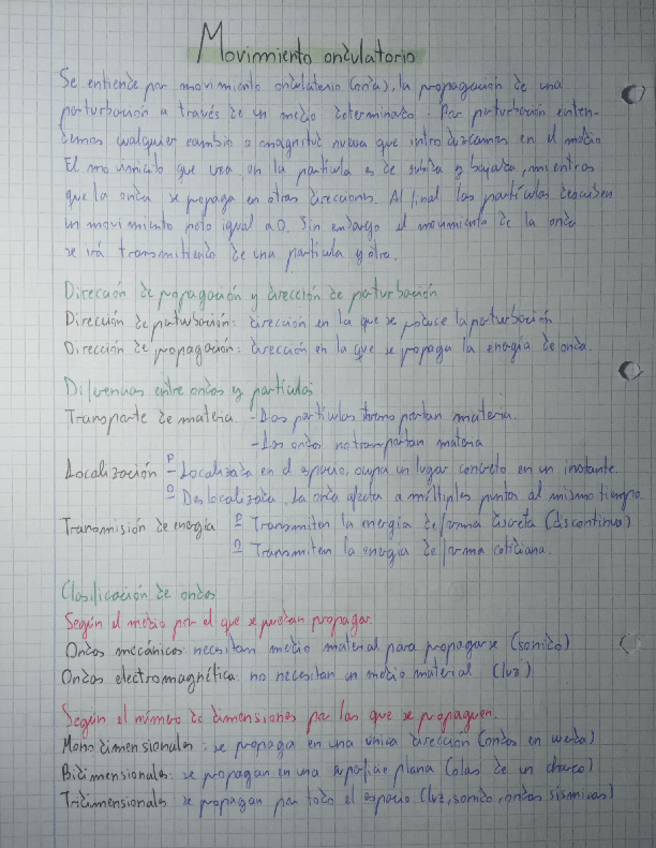 Movimiento ondulatorio
Se entiende por movimiento ondulatorio (onda), la propagación de una
perturbación a través de un medio determinado. Por perturbación enten-
demos cualquier cambio o magnitud nueva que introduzcamos en el medio
El movimiento que crea en la partícula es de subida y bajada, mientras
que la onda se propaga en otras direcciones. Al final las partículas describen
un movimiento neto igual a 0. Sin embargo el movimiento de la onda
se irá transmitiendo de una partícula y otra.
Dirección de propagación y dirección de perturbación
Dirección de perturbación: dirección en la que se produce la perturbación
Dirección de propagación: dirección en la que se propaga la energía de onda.
Diferencias entre ondas y partículas
Transporte de materia - Las partículas transportan materia.
- Las ondas no transportan materia
Localización P - Localizada en el espacio, ocupa un lugar concreto en un instante.
O - Deslocalizada. La onda afecta a múltiples puntos al mismo tiempo.
Transmisión de energía P - Transmiten la energía de forma discreta (discontinua)
O - Transmiten la energía de forma
Clasificación de ondas
Según el medio por el que se puedan propagar.
Ondas mecánicas: necesitan medio material para propagarse (sonido)
Ondas electromagnética: no necesitan un medio material (luz)
Según el número de dimensiones por las que se propaguen.
Monodimensionales: se propaga en una única dirección (ondas en cuerda)
Bidimensionales: se propagan en una superficie plana (olas de un charco)
Tridimensionales: se propagan por todo el espacio (luz, sonido, ondas sísmicas)